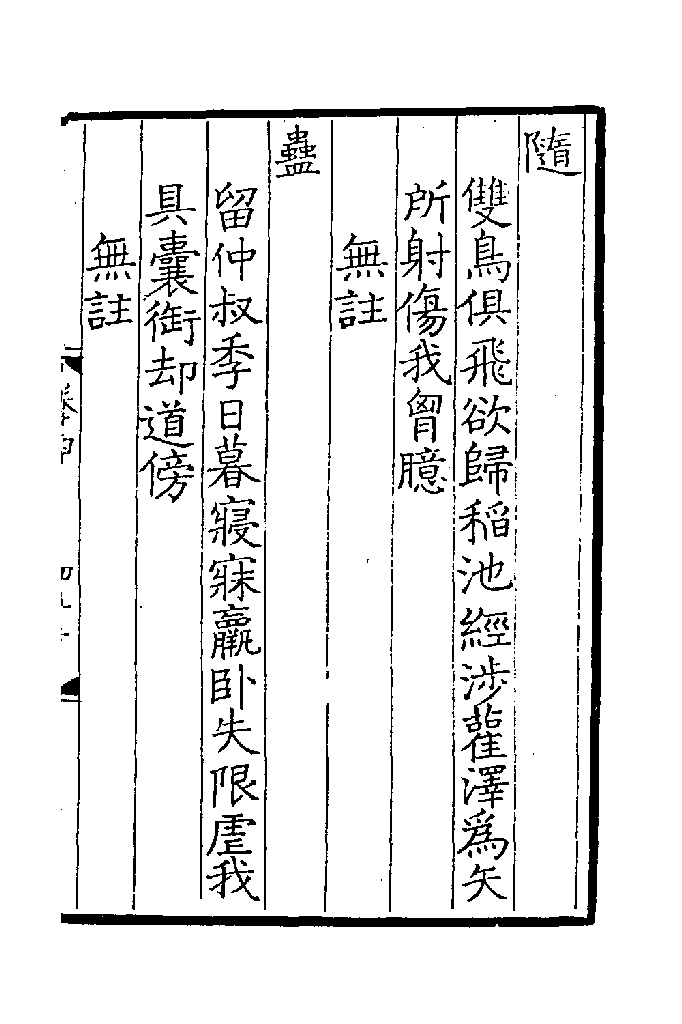 隨
雙鳥俱飛欲歸稲池經涉雚澤爲矢
所射傷我胷臆
無註
蠱
留仲叔季日暮寢寐羸卧失限虗我
具囊銜却道傍
無註